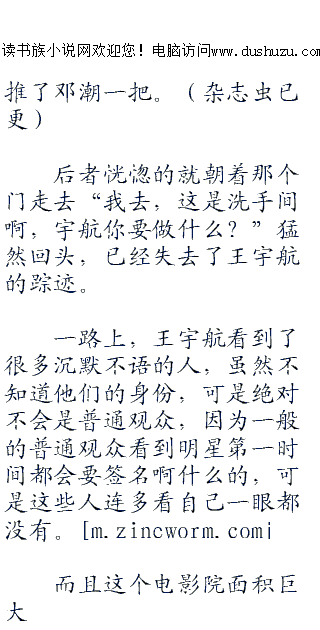 读书族小说网欢迎您！电脑访问www.dushuzu.com
推了邓潮一把。（杂志虫已
更）
后者恍惚的就朝着那个
门走去“我去，这是洗手间
啊，宇航你要做什么？”猛
然回头，已经失去了王宇航
的踪迹。
一路上，王宇航看到了
很多沉默不语的人，虽然不
知道他们的身份，可是绝对
不会是普通观众，因为一般
的普通观众看到明星第一时
间都会要签名啊什么的，可
是这些人连多看自己一眼都
没有。[m.zincworm.com|
而且这个电影院面积巨
大